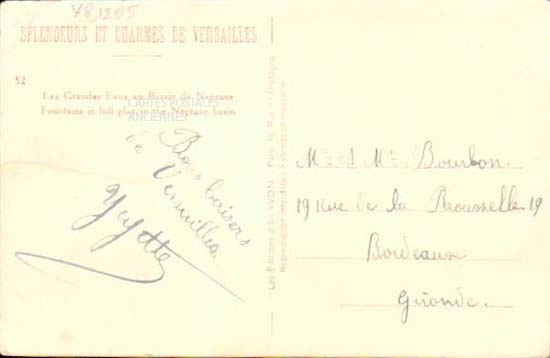 78,1205
SPLENDEURS ET CHARMES DE VERSAILLES
52
Les Grandes Eaux au Bassin de Neptune
Fountains in full play in the Neptune basin
CARTES POSTALES
ANCIENNES
Bons baisers
de Versailles.
Yvette
Les Editions d'Art YVON
Reproduction interdite
Mr et Mme Bourbon.
19 Rue de la Rousselle 19
Bordeaux
Gironde.